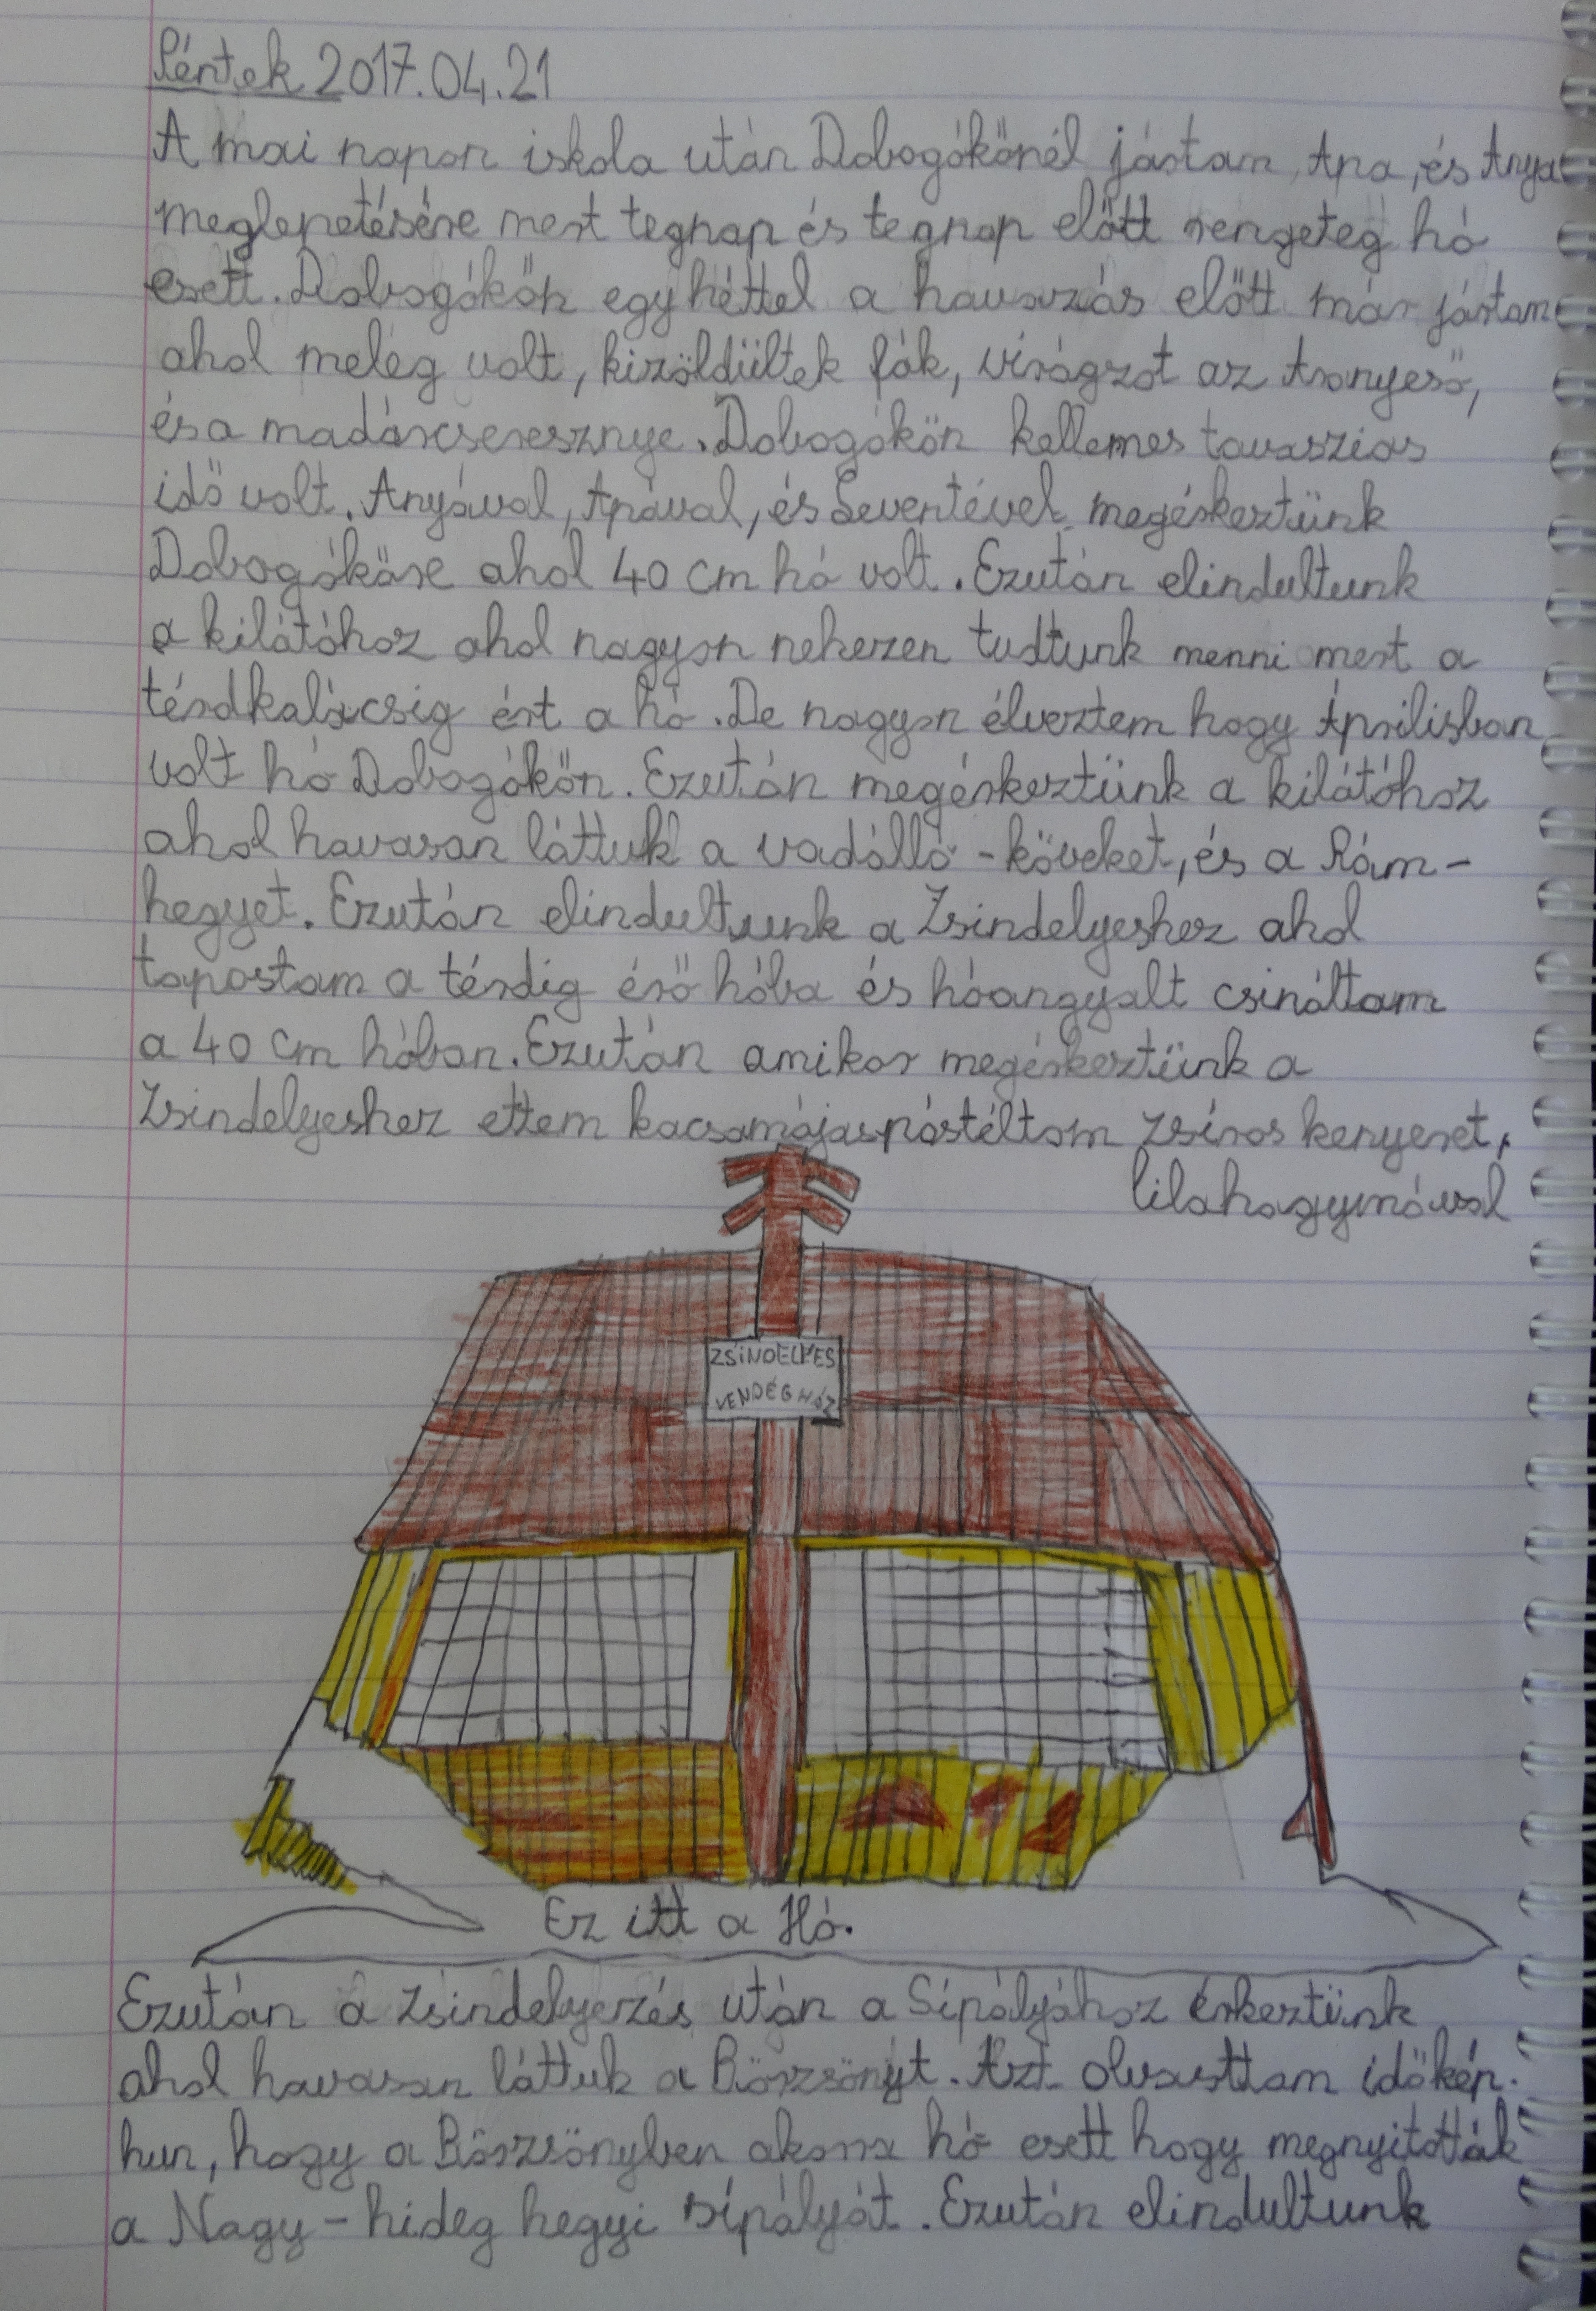 Péntek 2017.04.21
A mai napon iskola után Dobogókőnél jástam, Apa, és Anya
meglepetésére mert tegnap és tegnap előtt rengeteg hó
esett. Dobogókőn egy héttel a havazás előtt már jástam
ahol meleg volt, kizöldültek fák, virágzot az Aranyeső,
és a madárcseresznye. Dobogókőn kellemes tavaszias
idő volt. Anyával, Apával, és Leventével megéskeztünk
Dobogókőre ahol 40 cm hó volt. Ezután elindultunk
a kilátóhoz ahol nagyon nehezen tudtunk menni mert a
térdkalácsig ért a hó. De nagyon élveztem hogy Áprilisban
volt hó Dobogókőn. Ezután megérkeztünk a kilátóhoz
ahol havasan láttuk a vadálló-köveket, és a Rám-
hegyet. Ezután elindultunk a Zsindelyeshez ahol
tapostam a térdig érő hóba és hóangyalt csináltam
a 40 cm hóban. Ezután amikor megérkeztünk a
Zsindelyeshez ettem kacsamájaspástéltom zsíros kenyeret,
lilahagymával
ZSINDELYES
VENDÉGHÁZ
Ez itt a Hó.
Ezután a zsindelyezés után a Sípályához érkeztünk
ahol havasan láttuk a Börzsönyt. Azt olvasttam időkép.
hun, hogy a Börzsönyben akora hó esett hogy megnyitották
a Nagy-hideg hegyi sípályát. Ezután elindultunk